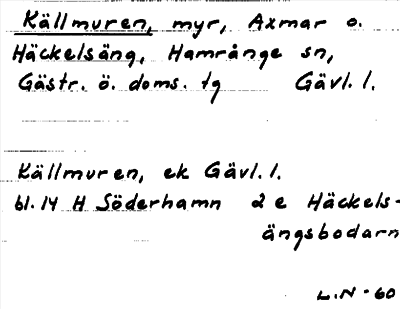 Källmuren, myr, Axmar o.
Häckelsäng, Hamrånge sn,
Gästr. ö. doms. tg Gävl. l.
Källmuren, ek Gävl. l.
bl. 14 H Söderhamn 2 e Häckels-
ängsbodarn
L.N - 60